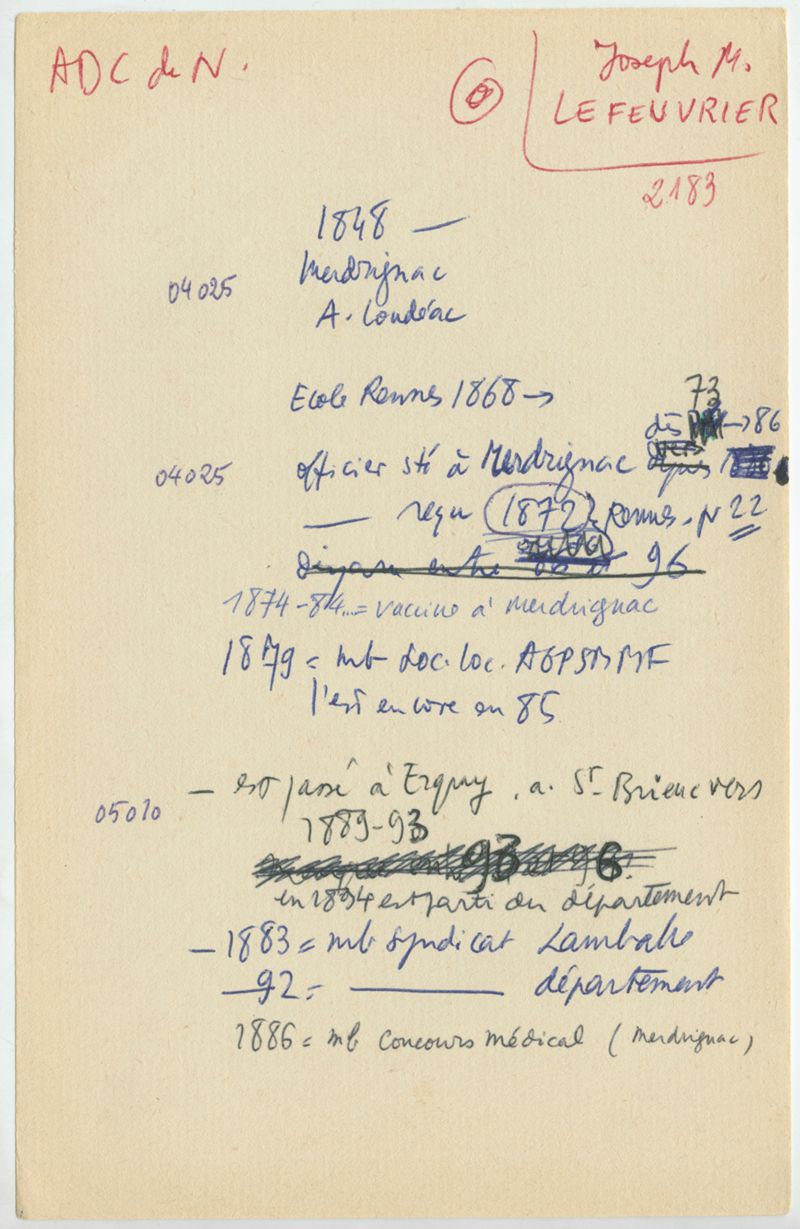 ADC du N.
Joseph M.
LEFEUVRIER
2183
1848 —
Merdrignac
04025
A. Loudéac
Ecole Rennes 1868 →
73
dès → 86
vers
04025
officier sté à Merdrignac depuis
—— reçu 1872, Rennes, n 22
entre 96
1874-84... = vaccine à Merdrignac
1879 = mb soc. loc. AGPSMMF
l'est encore en 85
— est passé à Erquy, a. St-Brieuc vers
05010
1889-93
93 96
en 1894 est parti du département
— 1883 = mb syndicat Lamballe
— 92 = —— département
1886 = mb Concours médical (Merdrignac)